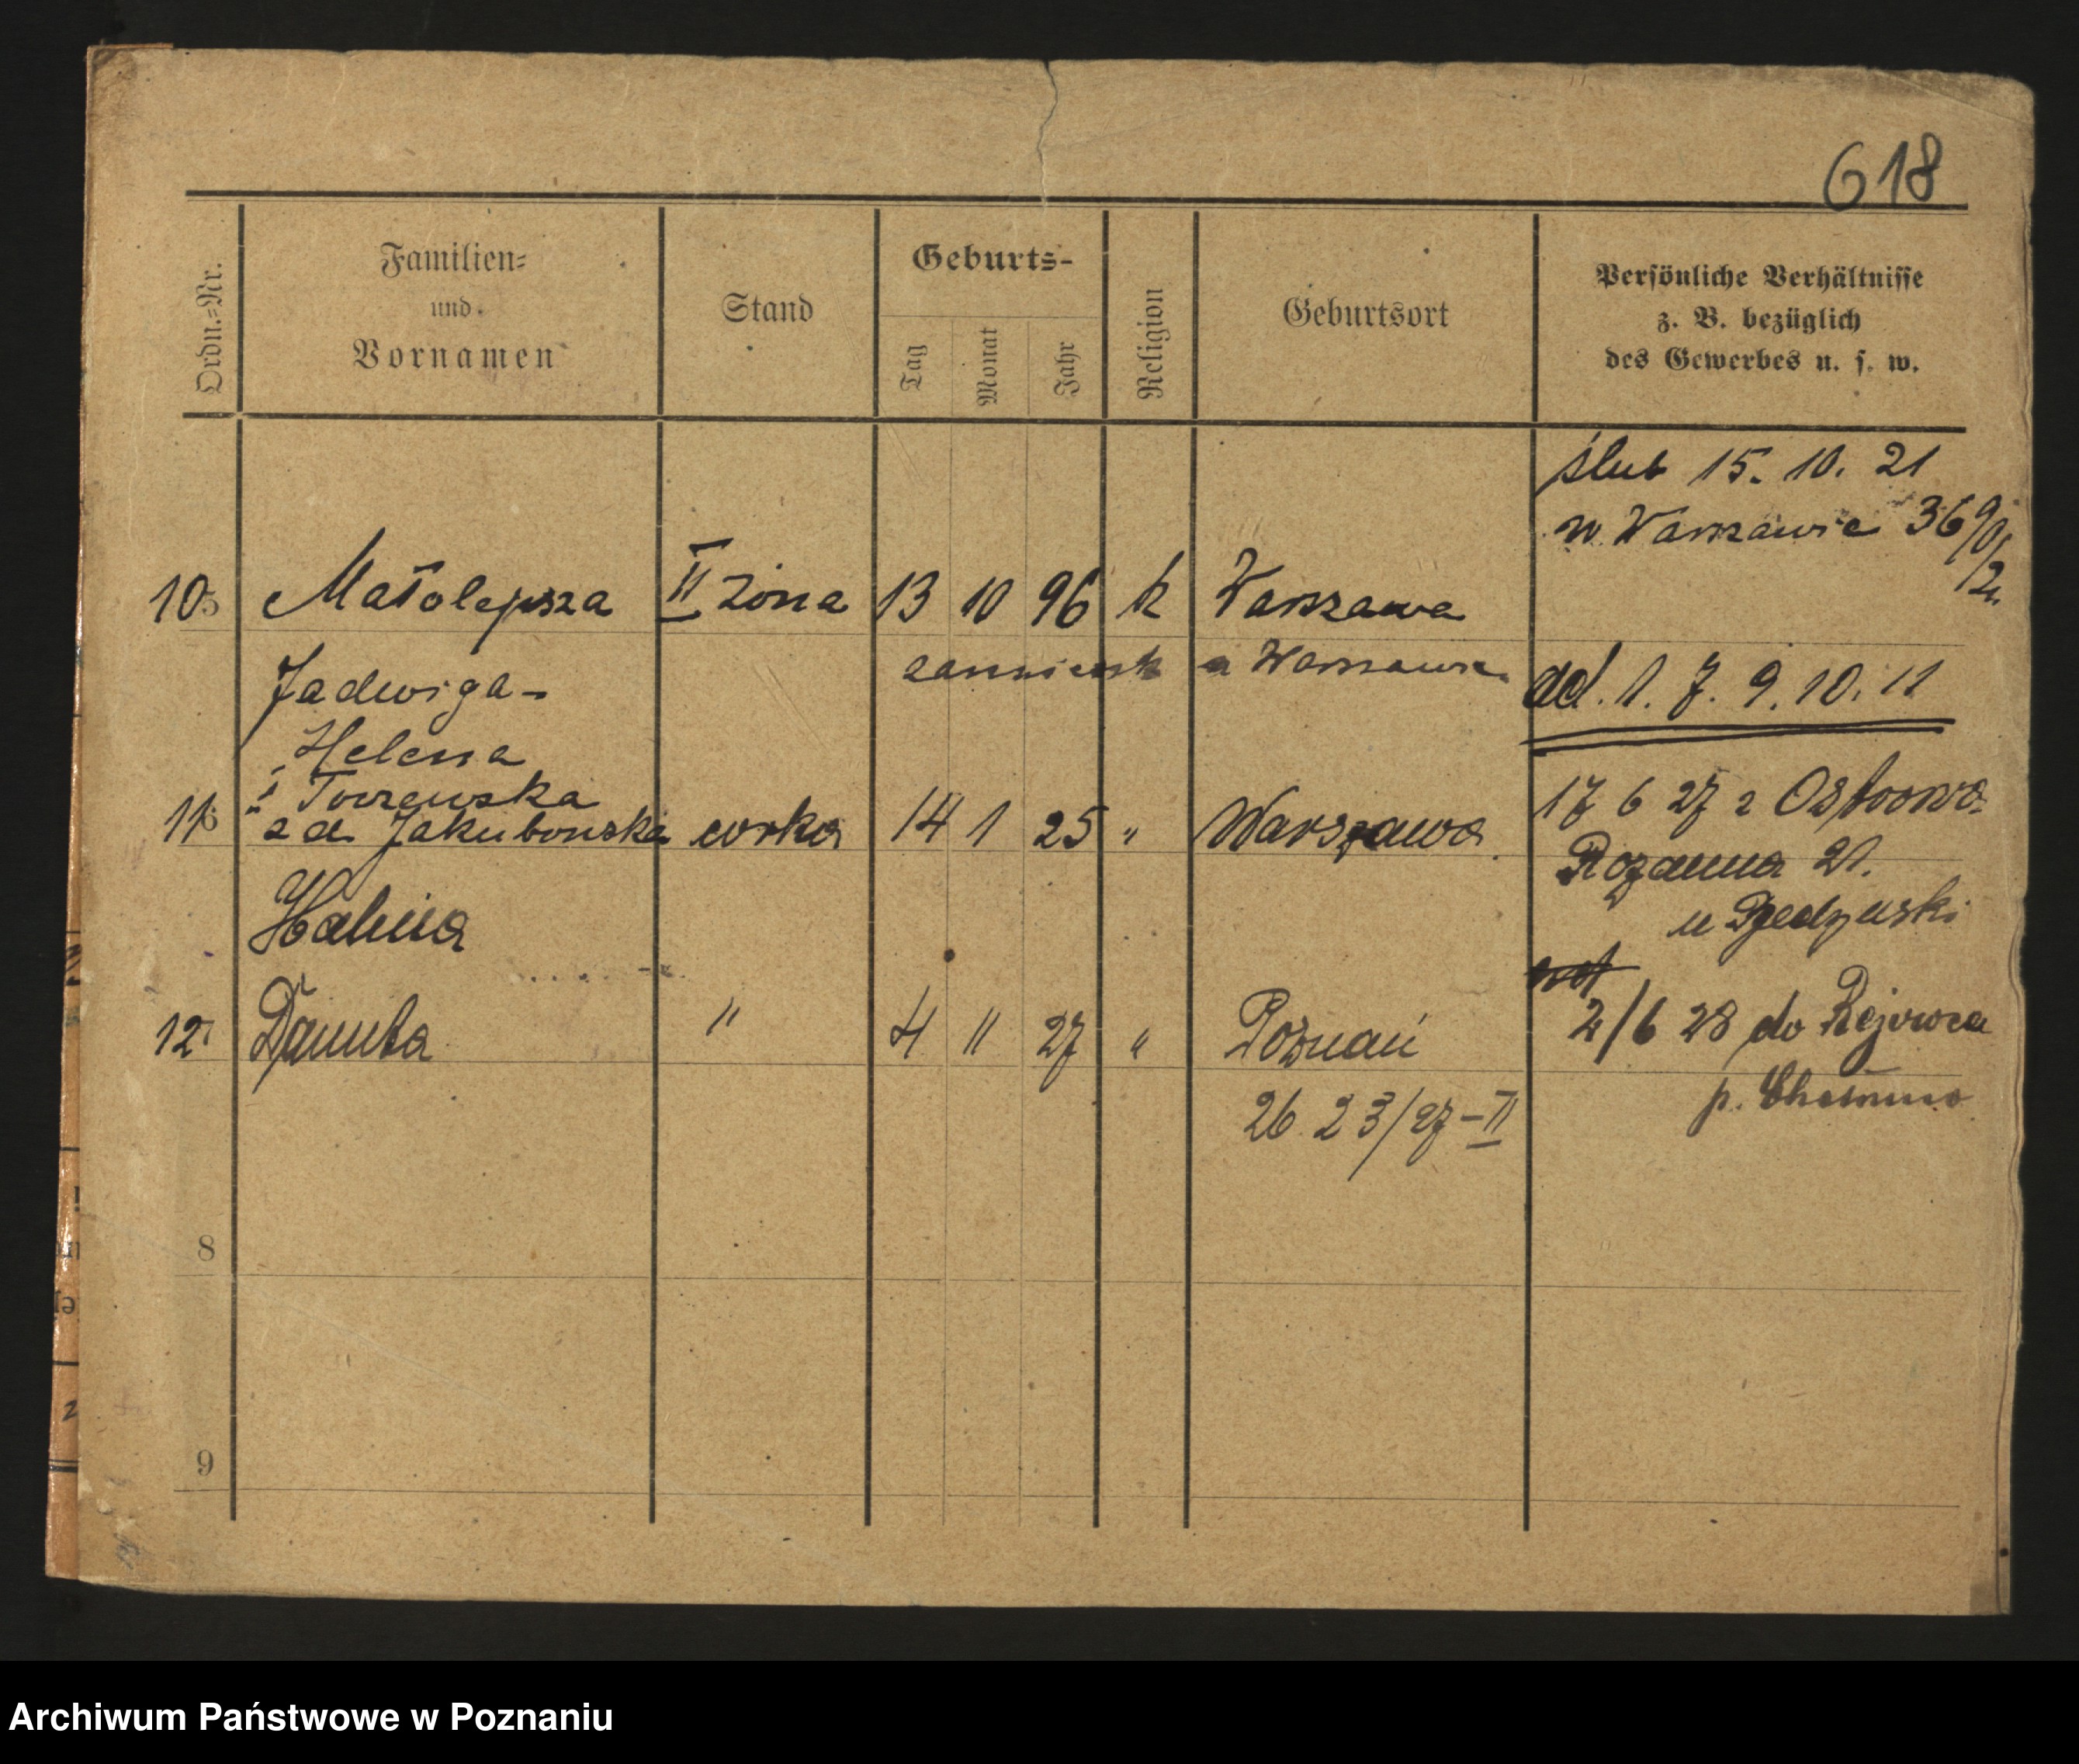 618
Ordn.=Nr.
Familien=
und
Vornamen
Stand
Geburts-
Tag
Monat
Jahr
Religion
Geburtsort
Persönliche Verhältnisse
z. B. bezüglich
des Gewerbes u. s. w.
ślub 15. 10. 21
w. Warszawie 36
10 Małolepsza II żona 13 10 96 k Warszawa
Jadwiga- Warszawie ad. 1. 7. 9. 10. 11
Helena
z d. Jakubowska
11 córka 14 1 25 " Warszawa
17 6 27 z Ostrowa
21.
u
Halina
12 Danuta " 4 11 27 " Poznań
2/6 28 do Rejowca
p.
26 23/27-II
8
9
Archiwum Państwowe w Poznaniu